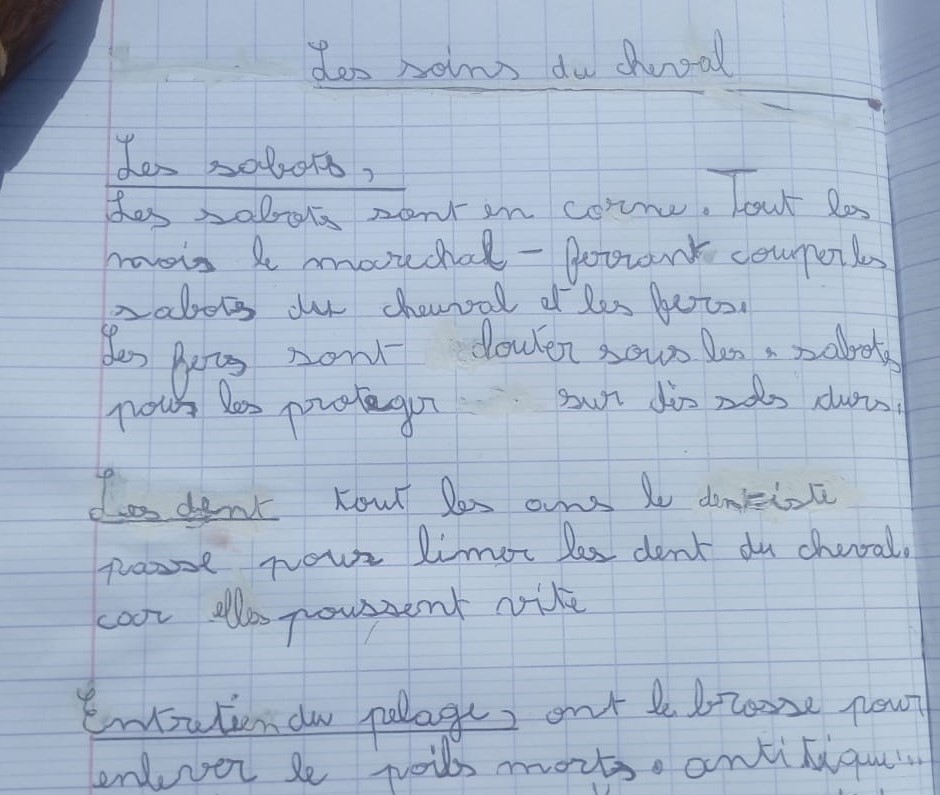 Les soins du cheval
Les sabots,
Les sabots sont en corne. Tout les
mois le marechal - ferrant couper les
sabots du cheuval et les fers.
Les fers sont clouter sous les sabots
pour les protéger sur dès sols durs.
Les dent tout les ans le dentiste
passe pour limer les dent du cheval.
car elles poussent vite
Entretien du pelage, ont le brosse pour
enlever le poils morts. antitiqu...